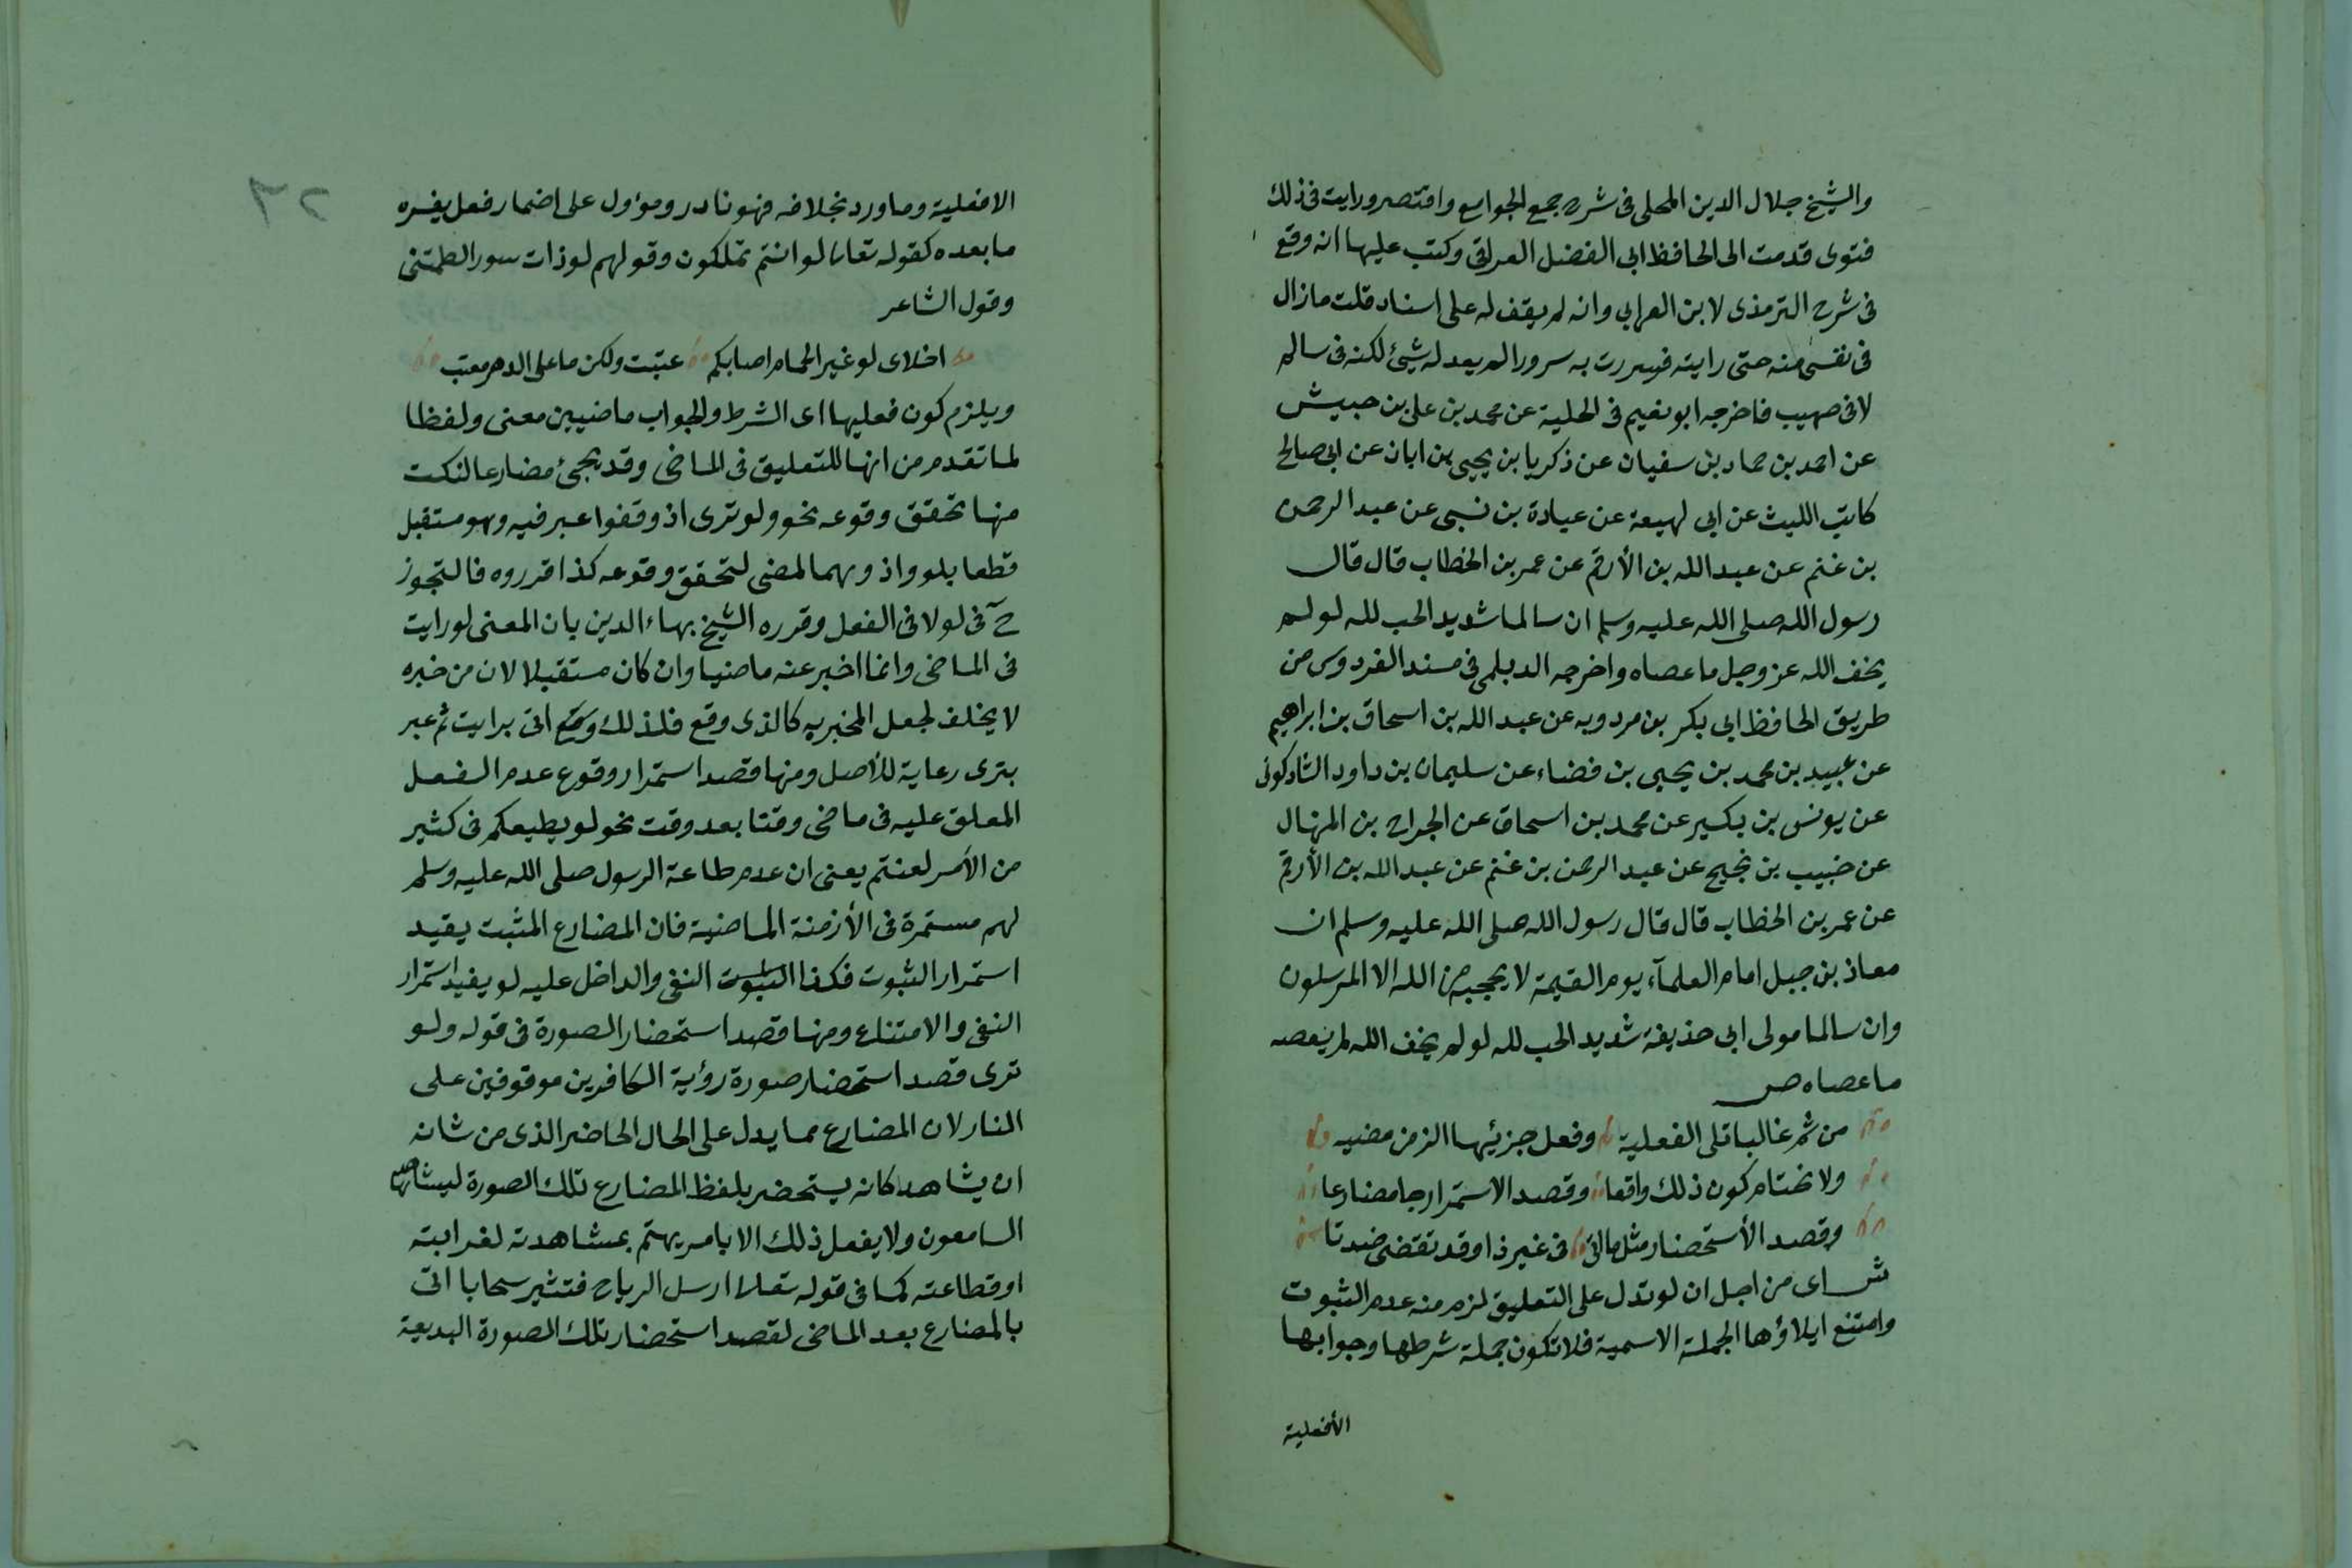 والشيخ جلال الدين المحلى فى شرح جمع الجوامع واقتصر ورايت فى ذلك
فتوى قدمت الى الحافظ ابى الفضل العراقى وكتب عليها انه وقع
فى شرح الترمذى لابن العرابى وانه لم يقف له على اسناد قلت مازال
فى نفسى منه حتى رايته فسررت به سرورا لم يعد له شيئ لكنه فى سالم
لا فى صهيب فاخرجه ابو نعيم فى الحلية عن محمد بن على بن حبيش
عن احمد بن حماد بن سفيان عن ذكريا بن يحيى بن ابان عن ابى صالح
كاتب الليث عن ابى لهيعة عن عبادة بن نسى عن عبد الرحمن
بن غنم عن عبد الله بن الأرقم عن عمر بن الخطاب قال قال
رسول الله صلى الله عليه وسلم ان سالما شديد الحب لله لو لم
يخف الله عز وجل ما عصاه واخرجه الديلمى فى مسند الفردوس من
طريق الحافظ ابى بكر بن مردويه عن عبد الله بن اسحاق بن ابراهيم
عن عبيد بن محمد بن يحيى بن قضاء عن سليمان بن داود الشادكونى
عن يونس بن بكير عن محمد بن اسحاق عن الجراح بن المنهال
عن حبيب بن نجيح عن عبد الرحمن بن غنم عن عبد الله بن الأرقم
عن عمر بن الخطاب قال قال رسول الله صلى الله عليه وسلم ان
معاذ بن جبل امام العلمآء يوم القيمة لا يحجبه من الله الا المرسلون
وان سالما مولى ابى حذيفة شديد الحب لله لو لم يخف الله لم يعصه
ما عصاه ص
من ثم غالبا تلى الفعلية وفعل جزئيها الزمن مضيه
ولا نحتام كون ذلك واقعا وقصد الاستمرار جا مضارعا
وقصد الأستحضار مثل ما اتى فى غير ذا وقد تقتضى ضدتا
ش اى من اجل ان لو تدل على التعليق لزم منه عدم الثبوت
وامتنع ايلاؤها الجملة الاسمية فلا تكون جملة شرطها وجوابها
الأفعلية
٢٢
الا فعلية وما ورد بخلافه فهو نادر ومؤول على اضمار فعل يفسره
ما بعده كقوله تعالى لو انتم تملكون وقولهم لو ذات سور الطمتنى
وقول الشاعر
اخلاى لو غير الحمام اصابكم عتبت ولكن ما على الدهر معتب
ويلزم كون فعليها اى الشرط والجواب ماضيين معنى ولفظا
لما تقدم من انها للتعليق فى الماضى وقد يجئ مضارعا لنكت
منها تحقق وقوعه نحو ولو ترى اذ وقفوا عبر فيه وهو مستقبل
قطعا بلو واذ وهما لمضى لتحقق وقوعه كذا قرروه فالتجوز
ح فى لو لا فى الفعل وقرره الشيخ بهاء الدين بان المعنى لو رايت
فى الماضى وانما اخبر عنه ماضيا وان كان مستقبلا لان من خبره
لا يخلف لجعل المخبر به كالذى وقع فلذلك وقع اتى برايت ثم عبر
بترى رعاية للأصل ومنها قصد استمرار وقوع عدم الفعل
المعلق عليه فى ماضى وقتا بعد وقت نحو لو يطيعكم فى كثير
من الأمر لعنتم يعنى ان عدم طاعة الرسول صلى الله عليه وسلم
لهم مستمرة فى الأزمنة الماضية فان المضارع المثبت يفيد
استمرار الثبوت فكذا النفى والداخل عليه لو يفيد استمرار
النفى والامتناع ومنها قصد استحضار الصورة فى قوله ولو
ترى قصد استحضار صورة رؤية الكافرين موقوفين على
النار لان المضارع مما يدل على الحال الحاضر الذى من شانه
ان يشاهد كانه يستحضر بلفظ المضارع تلك الصورة ليشاهد
السامعون ولا يفعل ذلك الا بامر يهتم بمشاهدته لغرابته
او قطاعته كما فى قوله تعالى ارسل الرياح فتثير سحابا اتى
بالمضارع بعد الماضى لقصد استحضار تلك الصورة البديعة